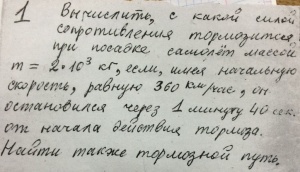 1 Вычислить, с какой силой
сопротивления тормозится
при посадке самолёт массой
m = 2·10³ кг, если, имея начальную
скорость, равную 360 км/час, он
остановился через 1 минуту 40 сек.
от начала действия тормоза.
Найти также тормозной путь.